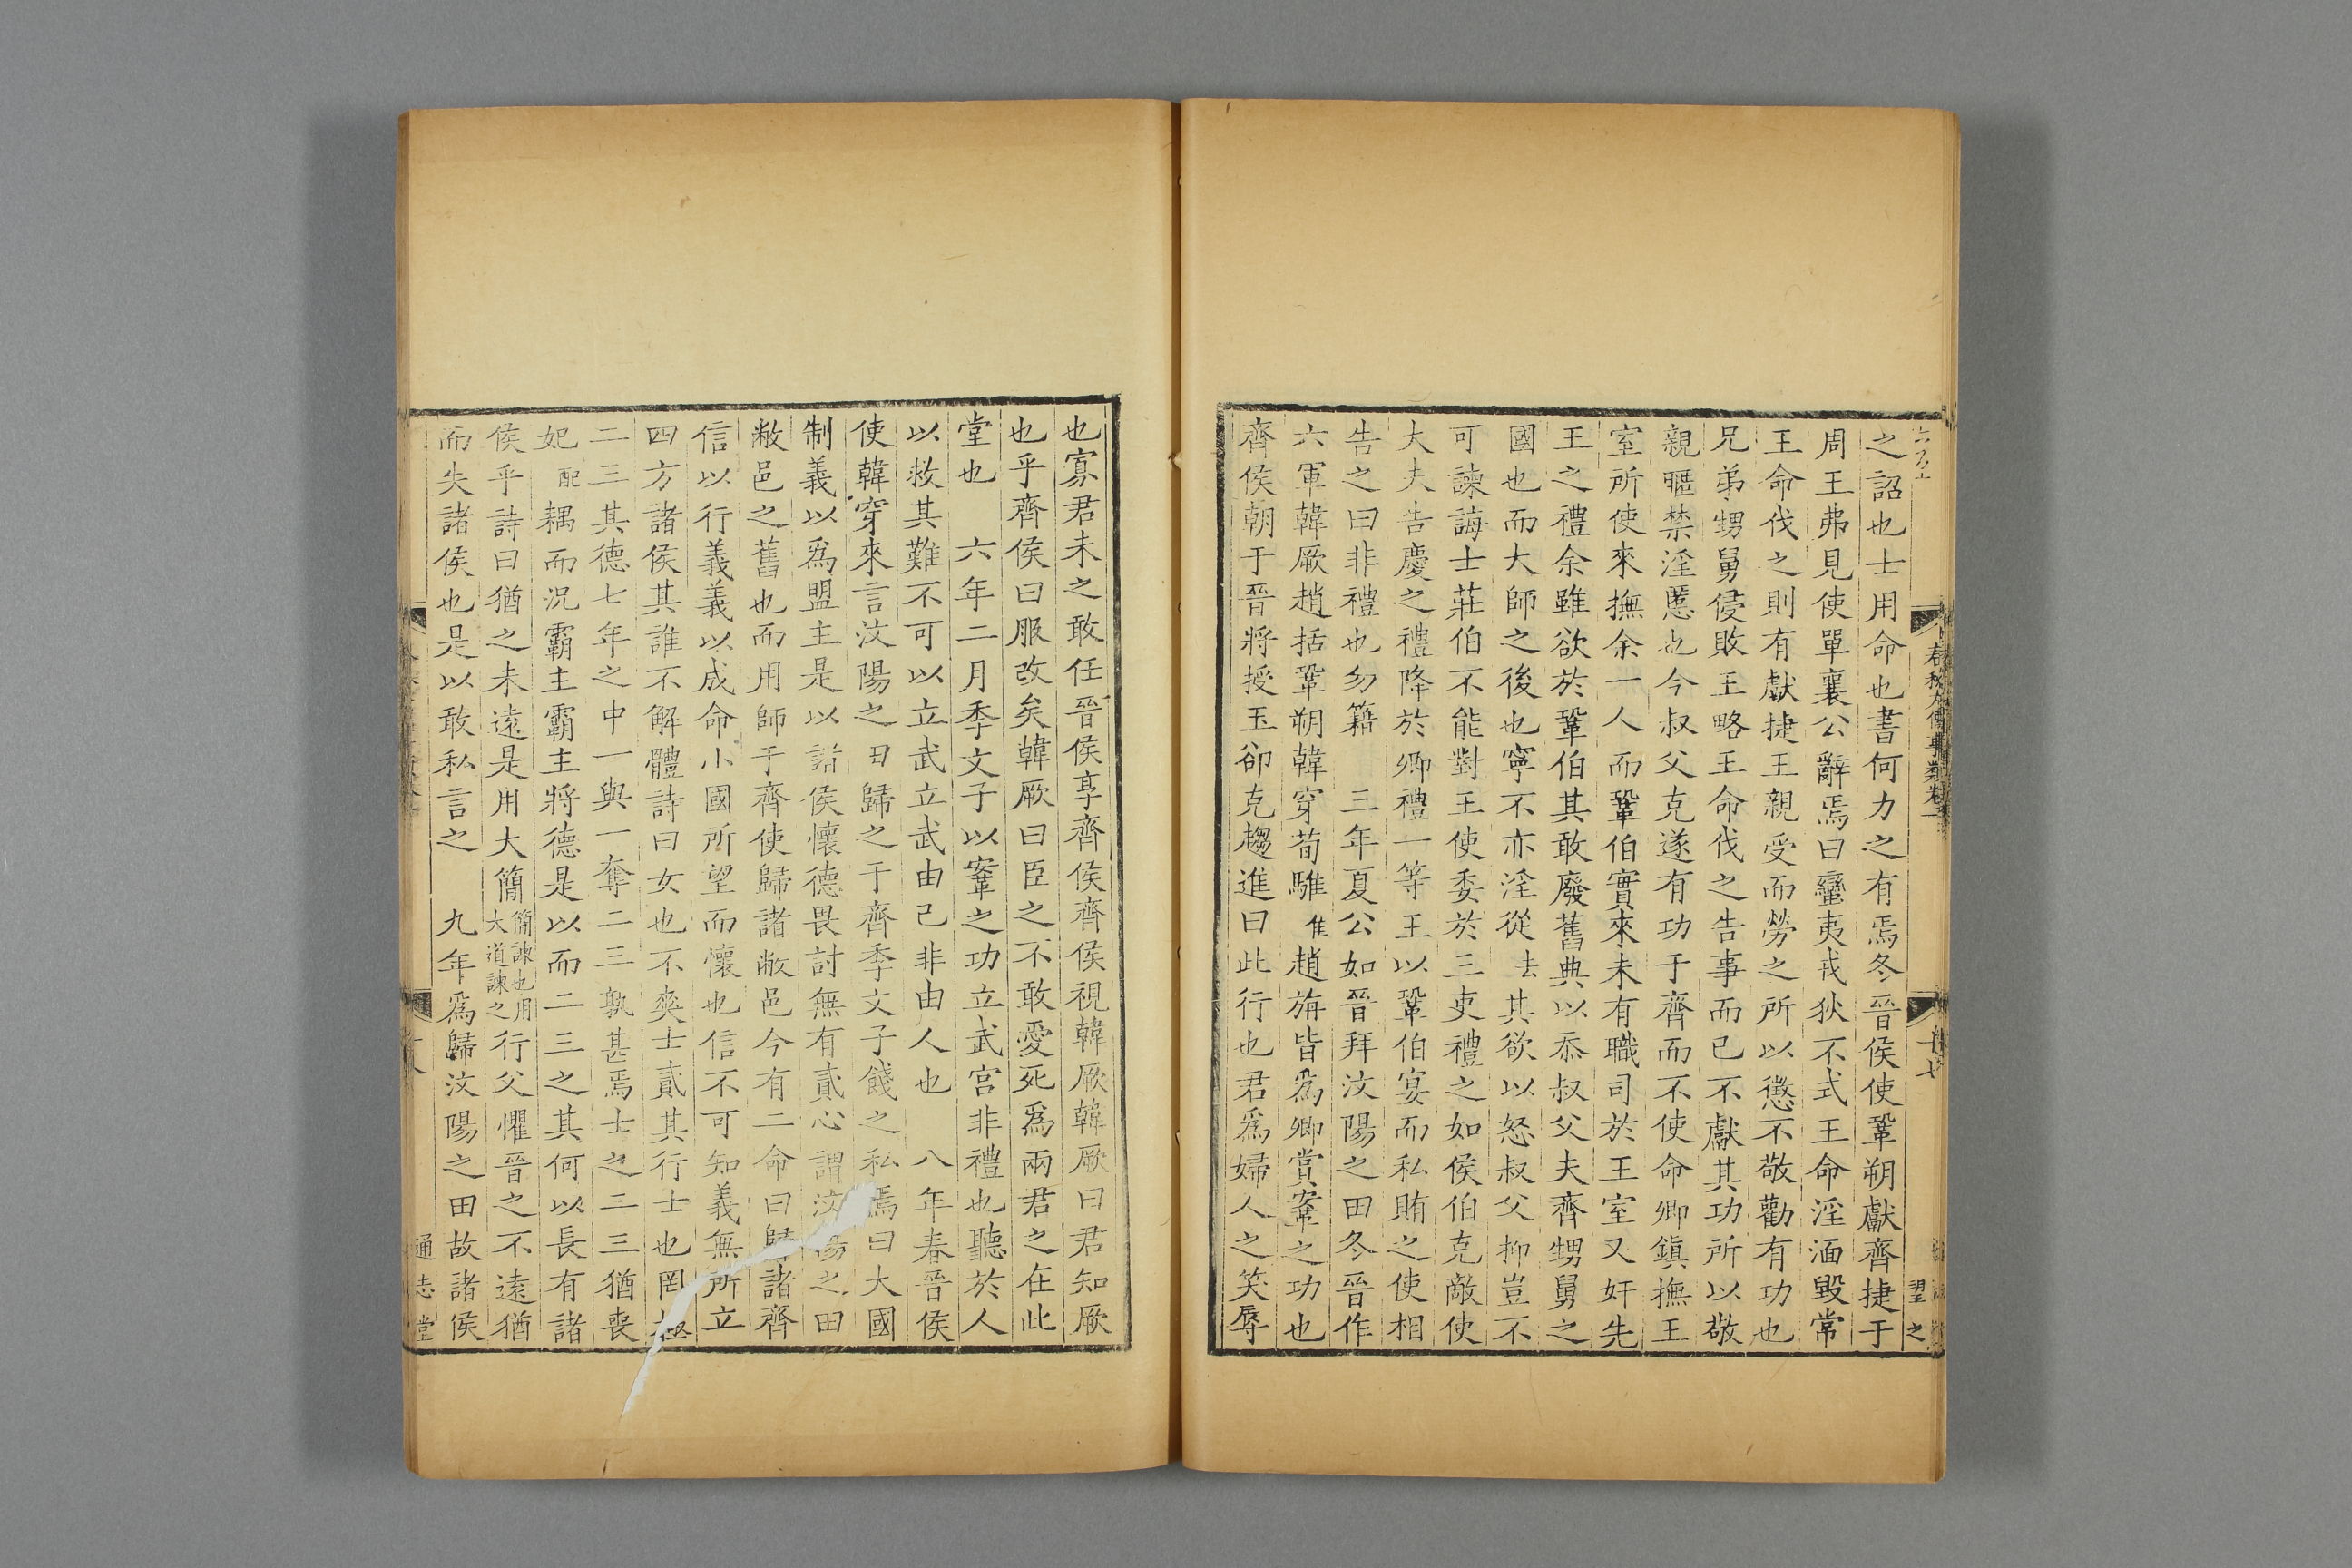 之詔也士用命也書何力之有焉冬晉侯使鞏朔獻齊捷于
周王弗見使單襄公辭焉曰蠻夷戎狄不式王命淫湎毀常
王命伐之則有獻捷王親受而勞之所以懲不敬勸有功也
兄弟甥舅侵敗王略王命伐之告事而已不獻其功所以敬
親暱禁淫慝也今叔父克遂有功于齊而不使命卿鎮撫王
室所使來撫余一人而鞏伯實來未有職司於王室又奸先
王之禮余雖欲於鞏伯其敢廢舊典以忝叔父夫齊甥舅之
國也而大師之後也寧不亦淫從去其欲以怒叔父抑豈不
可諫誨士莊伯不能對王使委於三吏禮之如侯伯克敵使
大夫告慶之禮降於卿禮一等王以鞏伯宴而私賄之使相
告之曰非禮也勿籍　三年夏公如晉拜汶陽之田冬晉作
六軍韓厥趙括鞏朔韓穿荀騅隹趙旃皆爲卿賞鞌之功也
齊侯朝于晉將授玉郤克趨進曰此行也君爲婦人之笑辱
春秋左傳事類卷一
十七
也寡君未之敢任晉侯享齊侯齊侯視韓厥韓厥曰君知厥
也乎齊侯曰服改矣韓厥曰臣之不敢愛死爲兩君之在此
堂也　六年二月季文子以鞌之功立武宮非禮也聽於人
以救其難不可以立武立武由己非由人也　八年春晉侯
使韓穿來言汶陽之田歸之于齊季文子餞之私焉曰大國
制義以爲盟主是以諸侯懷德畏討無有貳心謂汶陽之田
敝邑之舊也而用師于齊使歸諸敝邑今有二命曰歸諸齊
信以行義義以成命小國所望而懷也信不可知義無所立
四方諸侯其誰不解體詩曰女也不爽士貳其行士也罔極
二三其德七年之中一與一奪二三孰甚焉士之二三猶喪
妃配耦而況霸主霸主將德是以而二三之其何以長有諸
侯乎詩曰猶之未遠是用大簡簡諫也用大道諫之行父懼晉之不遠猶
而失諸侯也是以敢私言之　九年爲歸汶陽之田故諸侯
通志堂